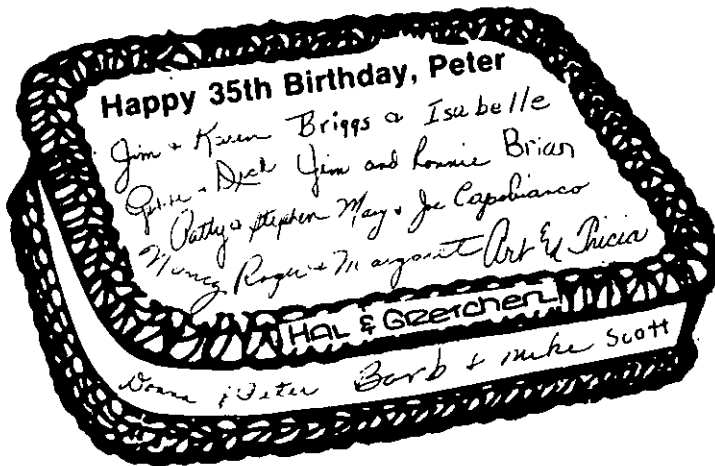 Happy 35th Birthday, Peter
Jim & Karen Briggs & Isabelle
& Dick Jim and Ronnie Brian
Patty & Stephen May & Joe Capobianco
Nancy Roger & Margaret Art & Tricia
HAL & GRETCHEN
Donna & Peter Barb & Mike Scott